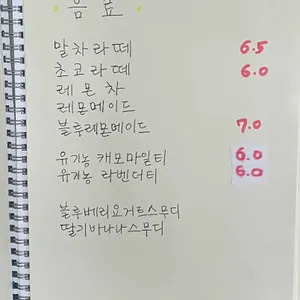 음료
말차라떼 6.5
초코라떼 6.0
레몬차
레몬메이드
블루레몬메이드 7.0
유기농 캐모마일티 6.0
유기농 라벤더티 6.0
블루베리요거트스무디
딸기바나나스무디